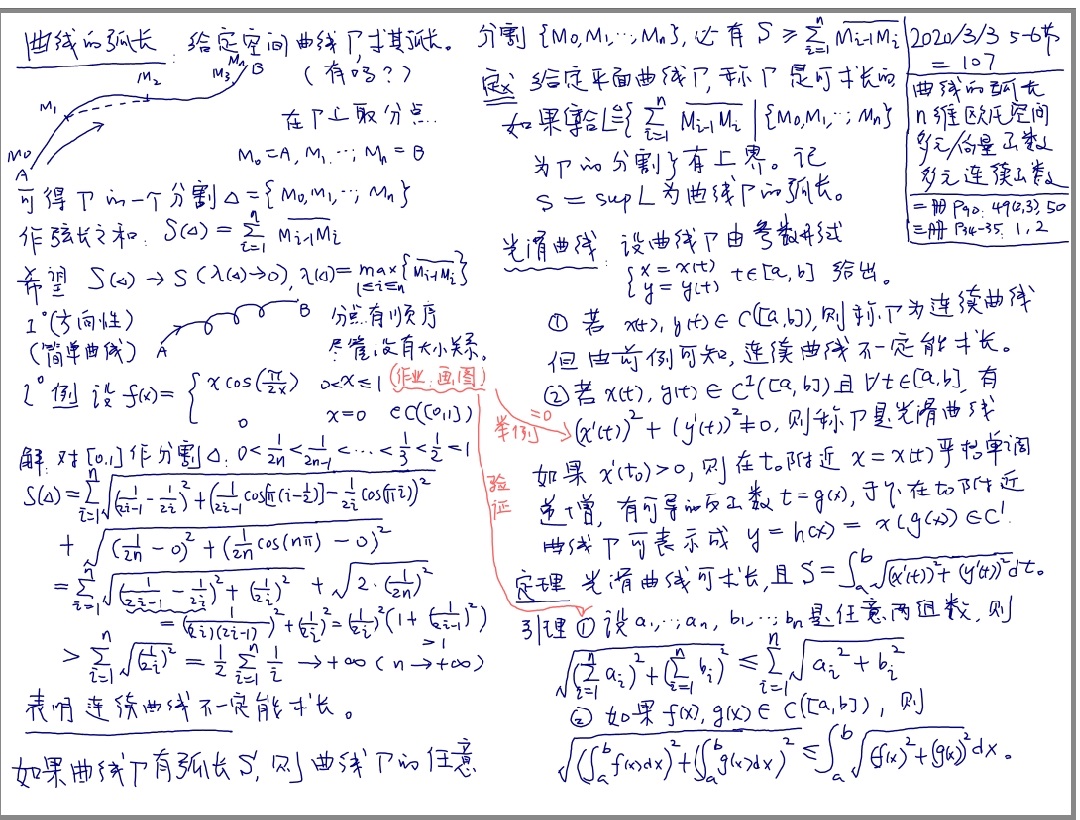 曲线的弧长：给定空间曲线Γ,求其弧长。
(有吗?)
M₀ A M₁ M₂ M₃ Mₙ B
在Γ上取分点
M₀=A, M₁, ⋯, Mₙ=B
可得Γ的一个分割△={M₀,M₁,⋯,Mₙ}
作弦长之和: S(△)=∑ᵢ₌₁ⁿ M̅ᵢ₋₁M̅ᵢ
希望 S(△)→S (λ(△)→0), λ(△)=max_{1≤i≤n}{M̅ᵢ₋₁M̅ᵢ}
1°(方向性)
(简单曲线) A B
分点有顺序
尽管没有大小关系。
2° 例 设 f(x)={ x cos(π/2x) 0<x≤1 (作业:画图)
0 x=0 ∈C([0,1])
解:对[0,1]作分割△: 0<1/2n<1/(2n-1)<⋯<1/3<1/2=1
S(△)=∑ᵢ₌₁ⁿ √((1/(2i-1)-1/2i)²+(1/(2i-1) cos[π(i-½)]-1/2i cos(πi))²)
+√((1/2n-0)²+(1/2n cos(nπ)-0)²)
=∑ᵢ₌₁ⁿ √((1/(2i-1)-1/2i)²+(1/2i)²)+√(2·(1/2n)²)
=(1/((2i)(2i-1)))²+(1/2i)²=(1/2i)²(1+(1/(2i-1))²)
>1
>∑ᵢ₌₁ⁿ √((1/2i)²)=½∑ᵢ₌₁ⁿ 1/i →+∞ (n→+∞)
表明连续曲线不一定能求长。
如果曲线Γ有弧长S,则曲线Γ的任意
分割{M₀,M₁,⋯,Mₙ},必有 S≥∑ᵢ₌₁ⁿ M̅ᵢ₋₁M̅ᵢ
定义 给定平面曲线Γ,称Γ是可求长的
如果集合L≜{∑ᵢ₌₁ⁿ M̅ᵢ₋₁M̅ᵢ | {M₀,M₁,⋯,Mₙ}
为Γ的分割}有上界。记
S=sup L为曲线Γ的弧长。
光滑曲线:设曲线Γ由参数形式
{x=x(t)
y=y(t) t∈[a,b] 给出。
① 若 x(t),y(t)∈C([a,b]),则称Γ为连续曲线
但由前例可知,连续曲线不一定能求长。
②若 x(t),y(t)∈C¹([a,b])且∀t∈[a,b],有
举例 =0 (x'(t))²+(y'(t))²≠0,则称Γ是光滑曲线
如果 x'(t₀)>0,则在t₀附近 x=x(t)严格单调
递增,有可导的反函数 t=g(x),于是在t₀附近
曲线Γ可表示成 y=h(x)=x(g(x))∈C¹
定理 光滑曲线可求长,且 S=∫ₐᵇ √((x'(t))²+(y'(t))²)dt。
验证
引理① 设a₁,⋯,aₙ, b₁,⋯,bₙ是任意两组数,则
√((∑ᵢ₌₁ⁿ aᵢ)²+(∑ᵢ₌₁ⁿ bᵢ)²)≤∑ᵢ₌₁ⁿ √(aᵢ²+bᵢ²)
② 如果 f(x),g(x)∈C([a,b]),则
√((∫ₐᵇ f(x)dx)²+(∫ₐᵇ g(x)dx)²)≤∫ₐᵇ √((f(x))²+(g(x))²)dx。
2020/3/3 5-6节
=107
曲线的弧长
n维欧氏空间
多元/向量函数
多元连续函数
=册 P90: 49(2,3), 50
=册 P34-35: 1, 2